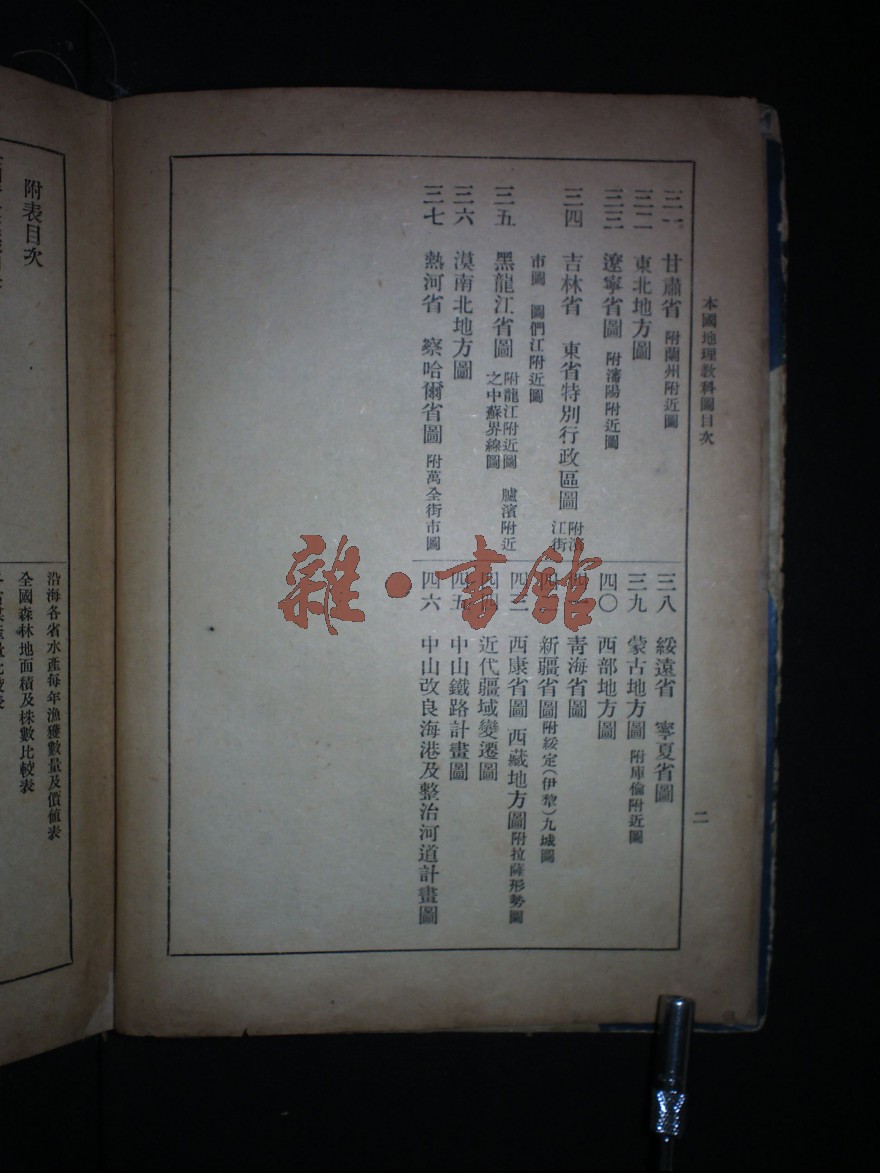 本國地理教科圖目次
二
三一 甘肅省 附蘭州附近圖
三二 東北地方圖
三三 遼寧省圖 附瀋陽附近圖
三四 吉林省 東省特別行政區圖 附濱江街
市圖 圖們江附近圖
三五 黑龍江省圖 附龍江附近圖 臚濱附近
之中蘇界線圖
三六 漠南北地方圖
三七 熱河省 察哈爾省圖 附萬全街市圖
三八 綏遠省 寧夏省圖
三九 蒙古地方圖 附庫倫附近圖
四〇 西部地方圖
青海省圖
新疆省圖 附綏定(伊犂)九城圖
四三 西康省圖 西藏地方圖 附拉薩形勢圖
四四 近代疆域變遷圖
四五 中山鐵路計畫圖
四六 中山改良海港及整治河道計畫圖
雜·書館
附表目次
沿海各省水產每年漁獲數量及價值表
全國森林地面積及株數比較表